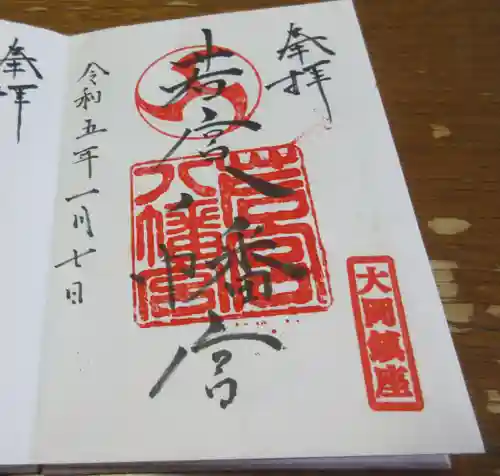 奉拝
若宮八幡宮
若宮
八幡宮
大岡鎮座
令和五年一月七日
奉拝